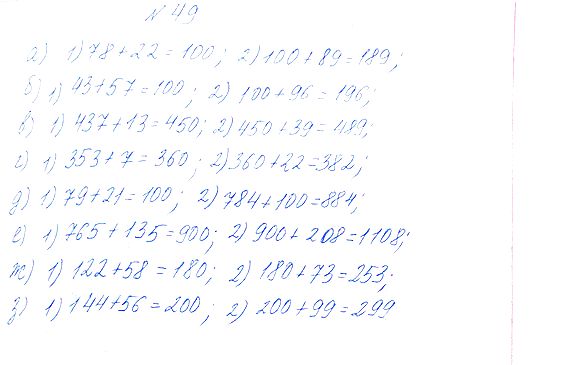 № 49
а) 1) 78 + 22 = 100; 2) 100 + 89 = 189;
б) 1) 43 + 57 = 100; 2) 100 + 96 = 196;
в) 1) 437 + 13 = 450; 2) 450 + 39 = 489;
г) 1) 353 + 7 = 360; 2) 360 + 22 = 382;
д) 1) 79 + 21 = 100; 2) 784 + 100 = 884;
е) 1) 765 + 135 = 900; 2) 900 + 208 = 1108;
ж) 1) 122 + 58 = 180; 2) 180 + 73 = 253;
з) 1) 144 + 56 = 200; 2) 200 + 99 = 299